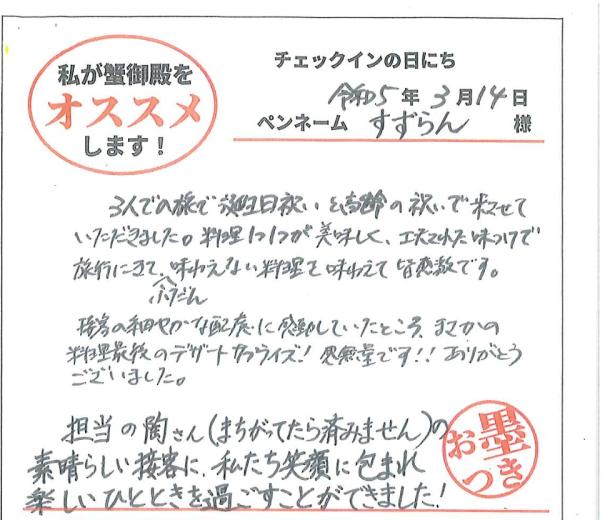 私が蟹御殿を
オススメ
します！
チェックインの日にち
令和5年3月14日
ペンネーム すずらん 様
3人での旅で誕生日祝いと高齢の祝いで来させて
いただきました。料理1つ1つが美味しく、工夫された味つけで
旅行にきて、味わえない料理を味わえて皆感激です。
ふだん
接客の細やかな配慮に感動していたところ、まさかの
料理最後のデザートサプライズ！感無量です！！ありがとう
ございました。
担当の陶さん(まちがってたら済みません)の
素晴らしい接客に、私たち笑顔に包まれ
楽しいひとときを過ごすことができました！
お墨つき